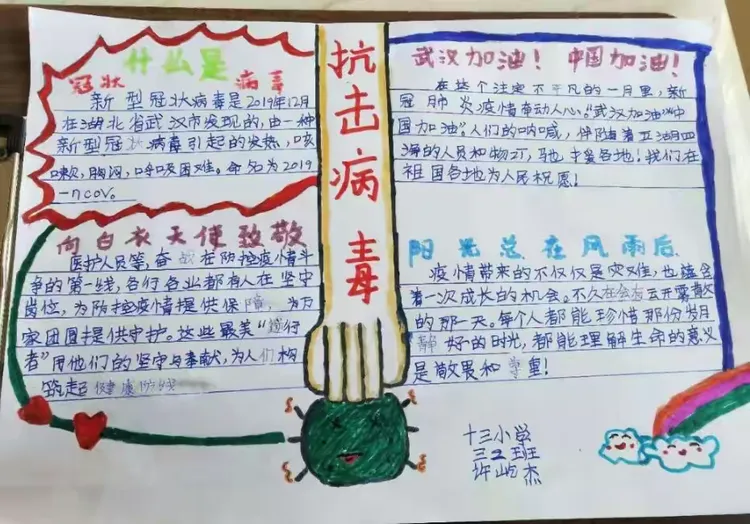 什么是
冠状 病毒
新型冠状病毒是2019年12月
在湖北省武汉市发现的,由一种
新型冠状病毒引起的发热,咳
嗽,胸闷,呼吸困难。命名为2019
-ncov。
向白衣天使致敬
医护人员等,奋战在防控疫情斗
争的第一线,各行各业都有人在坚守
岗位,为防控疫情提供保障,为万
家团圆提供守护。这些最美“逆行
者”用他们的坚守与奉献,为人们构
筑起健康防线
抗击病毒
武汉加油!中国加油!
在这个注定不平凡的一月里,新
冠肺炎疫情牵动人心。“武汉加油”“中
国加油”人们的呐喊,伴随着五湖四
海的人员和物,驰援各地!我们在
祖国各地为人民祝愿!
阳光总在风雨后
疫情带来的不仅仅是灾难,也蕴含
着一次成长的机会。不久在会有云开雾散
的那一天。每个人都能珍惜那份岁月
静好的时光,都能理解生命的意义
是敬畏和尊重!
十三小学
三2班
许屿杰